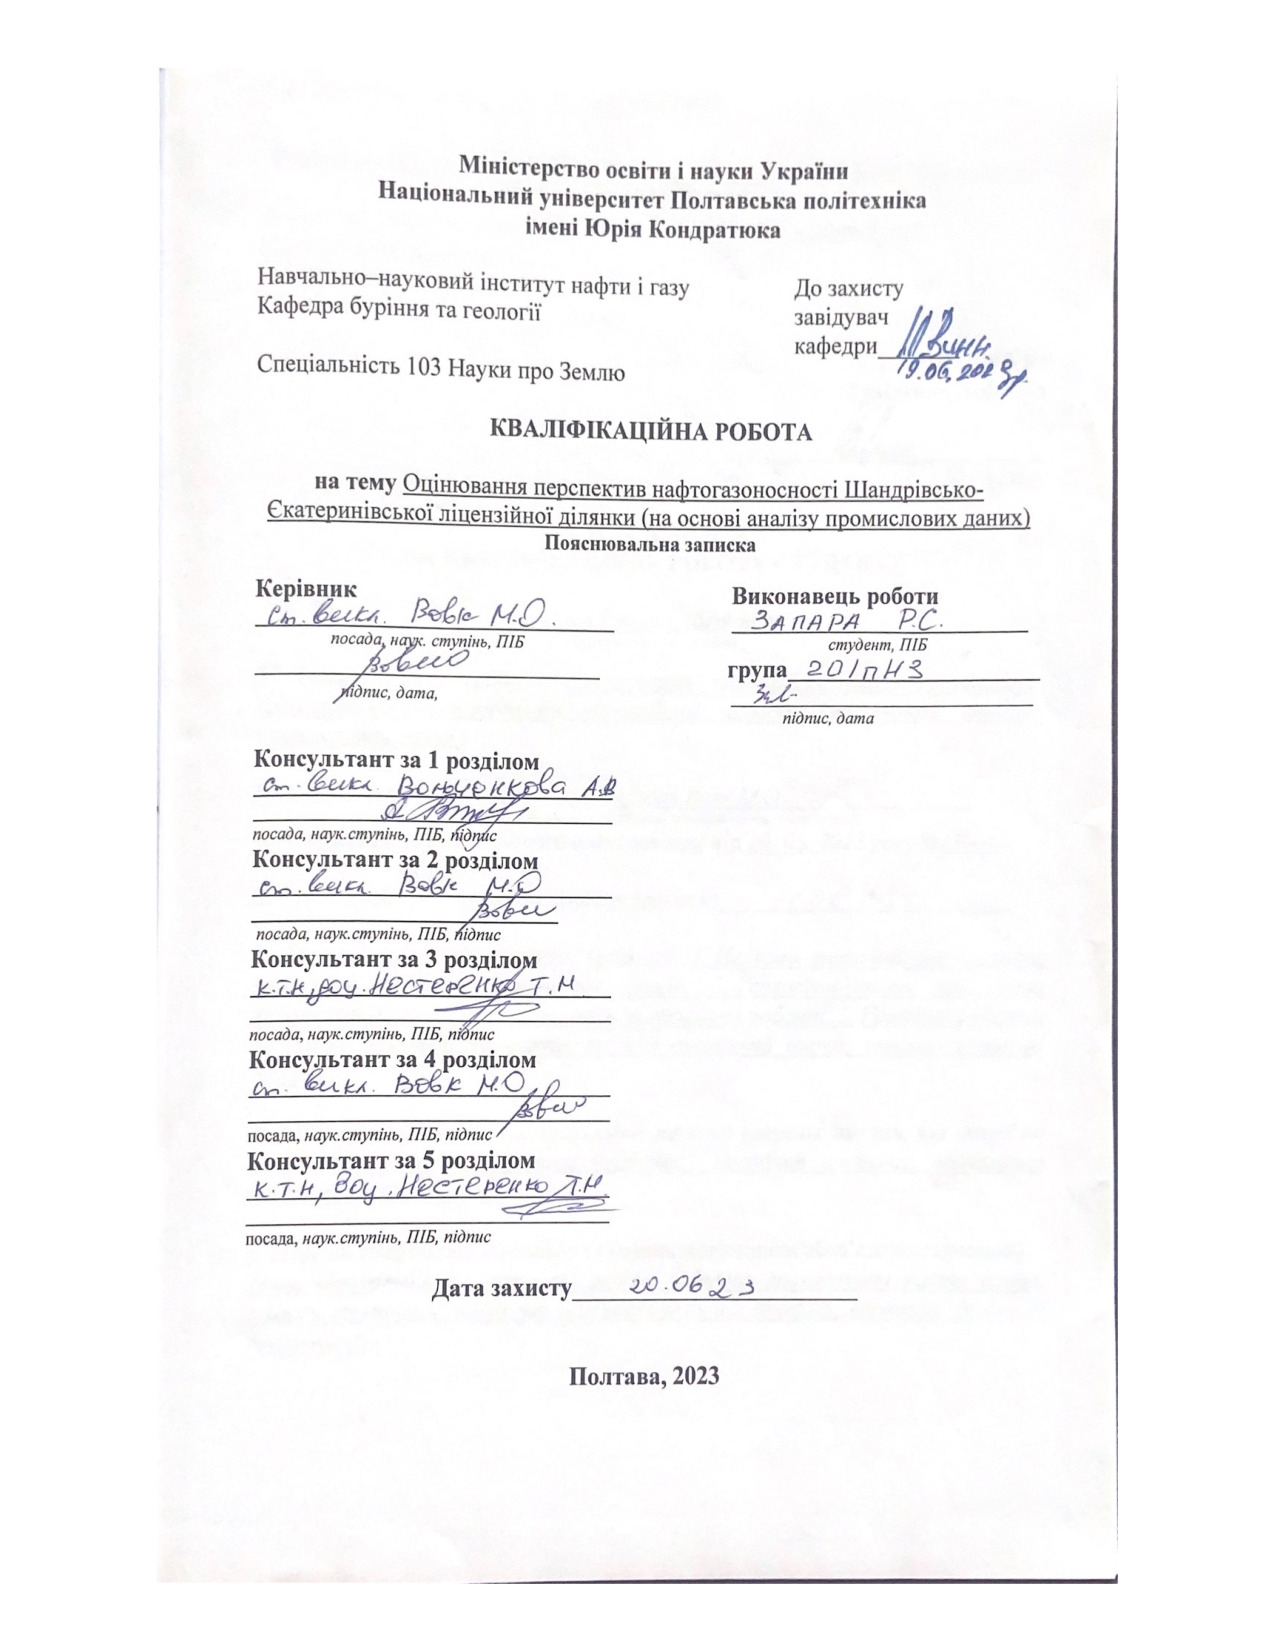 Міністерство освіти і науки України
Національний університет Полтавська політехніка
імені Юрія Кондратюка
Навчально–науковий інститут нафти і газу
Кафедра буріння та геології
Спеціальність 103 Науки про Землю
До захисту
завідувач
кафедри
19.06.2023р.
КВАЛІФІКАЦІЙНА РОБОТА
на тему Оцінювання перспектив нафтогазоносності Шандрівсько-
Єкатеринівської ліцензійної ділянки (на основі аналізу промислових даних)
Пояснювальна записка
Керівник
ст. викл. Вовк М.О.
посада, наук. ступінь, ПІБ
підпис, дата,
Виконавець роботи
ЗАПАРА Р.С.
студент, ПІБ
група 201пНЗ
підпис, дата
Консультант за 1 розділом
ст. викл. А.В
посада, наук.ступінь, ПІБ, підпис
Консультант за 2 розділом
ст. викл. Вовк М.О
посада, наук.ступінь, ПІБ, підпис
Консультант за 3 розділом
к.т.н, доц. Нестеренко Т.М.
посада, наук.ступінь, ПІБ, підпис
Консультант за 4 розділом
ст. викл. Вовк М.О
посада, наук.ступінь, ПІБ, підпис
Консультант за 5 розділом
к.т.н, доц. Нестеренко Т.М.
посада, наук.ступінь, ПІБ, підпис
Дата захисту 20.06 23
Полтава, 2023